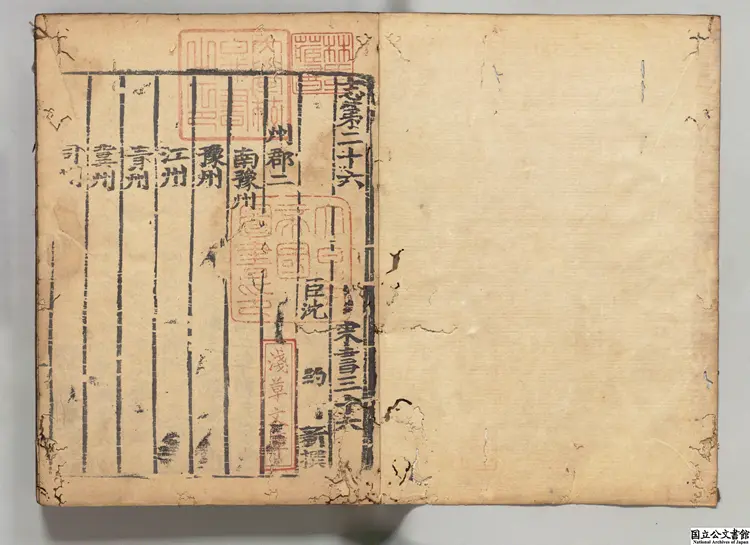 志第二十六 宋書三十六
臣沈 約 新撰
州郡二
南豫州
豫州
江州
青州
冀州
司州
淺草文庫
国立公文書館
National Archives of Japan